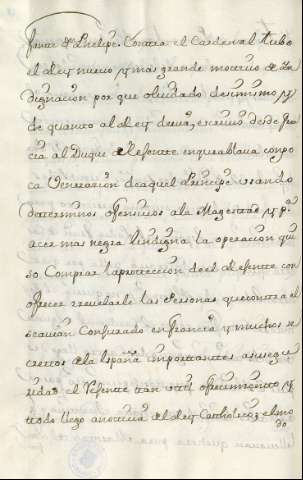 frente Dⁿ Phelipe. Contra el Cardenal tubo
el Rey nuevo y mas grande motivo de In
dignacion por que olvidado desimismo y
de quanto al Rey devia, escrivio desde
al Duque Rexente en que hablava con po
ca Veneracion de aquel Principe usando
de terminos ofensivos ala Magestad y pª
acer mas negra Eindigna la operacion qui
so Comprar la proteccion del Rexente con
ofrecer revelarle las Personas que contra el
se avian Conjurado en francia y muchos se
cretos de la España importantes asu segu
ridad el Rexente tan util ofrecimiento y
todo llego anoticia del Rey Catholico; el mo
do